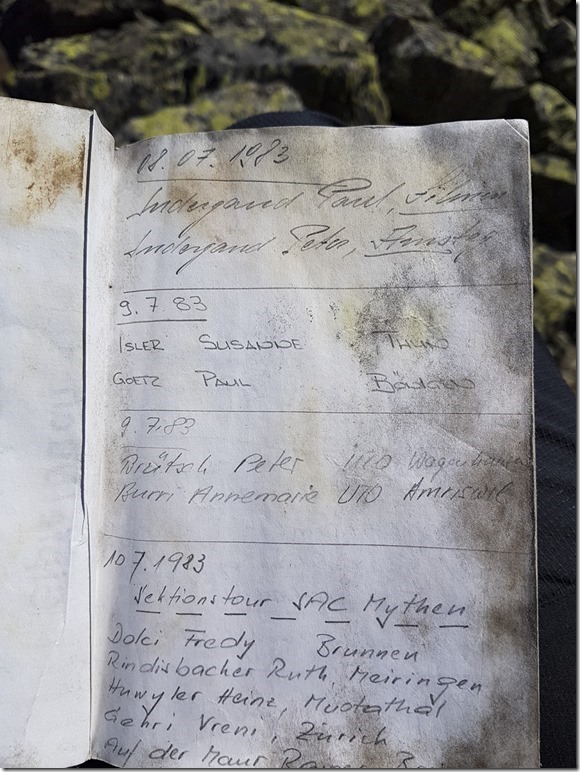 08.07.1983
Indergand Paul,
Indergand Peter, Amsteg
9.7 83
ISLER SUSANNE THUN
GOETZ PAUL
9.7.83
Brütsch Peter UTO Wagenhausen
Burri Annemarie UTO Amriswil
10 7.1983
Sektionstour SAC Mythen
Dolci Fredy Brunnen
Rindisbacher Ruth, Meiringen
Huwyler Heinz, Muotathal
Gehri Vreni, Zürich
Auf der Maur